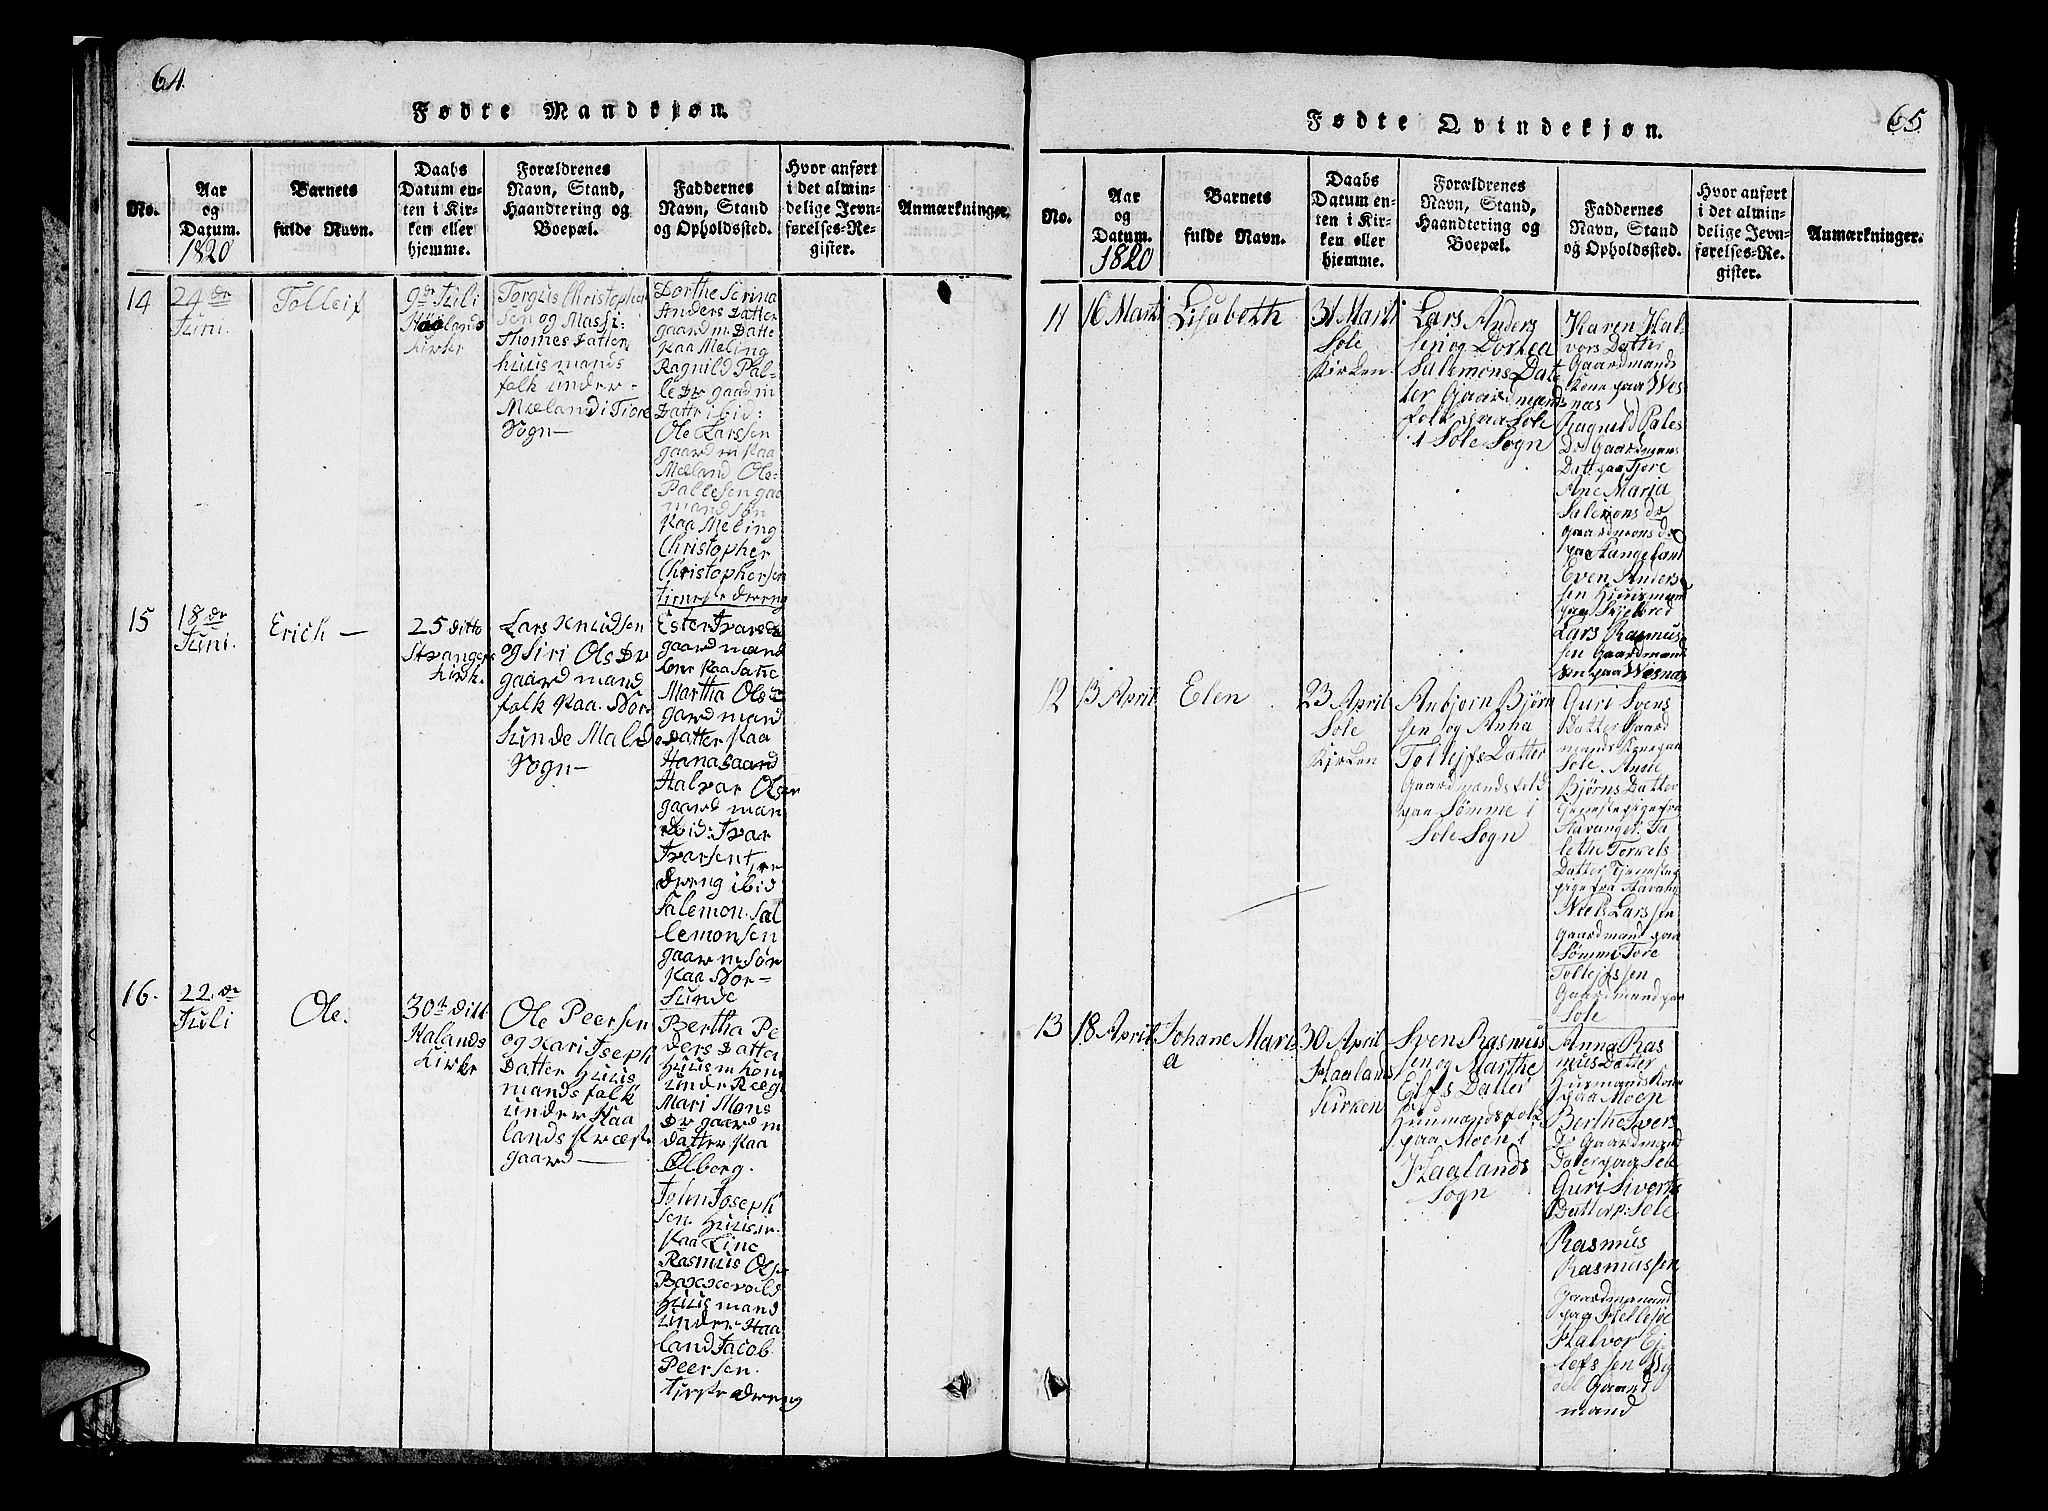 64.
Fødte Mandkjøn.
No.
Aar
og
Datum.
1820
Barnets
fulde Navn.
Daabs
Datum en-
ten i Kir-
ken eller
hjemme.
Forældrenes
Navn, Stand,
Haandtering og
Boepæl.
Faddernes
Navn, Stand
og Opholdssted.
Hvor anført
i det almin-
delige Jevn-
førelses-Re-
gister.
Anmærkninger.
14
24 de
Juni.
Tolleif
9de Juli
Haalands
Kirke
Torgus Christopher
sen og Massi
Thomes Datter
Huusmands
folk under
Mæland i Tiore
Sogn
Dorthe Serina
Anders Datter
gaard m Datte
Paa Meling
Ragnild Pal-
le Dr gaad m
Datter ibid:
Ole Larssen
gaard m Paa
Mæland Ole
Pallesen gaa
mand søn
Paa Meling
Christopher
Christophersen
dreng
15
18 de
Juni.
Erich
25 ditto
Stavanger
Kirk.
Lars Knudsen
og Siri Ols Dr
gaard mand
folk Paa Nor
sunde Malde
Sogn
Ester Ivars
gaard mand
kone Paa
Martha Ols
gard mand
Datter Paa
Hanagaard
Halvar Olsen
gaard man
ibid: Ivar
Ivarsen tiene
dreng ibid
Salemon Sal
lemonsen
gaar m søn
Paa Nor-
sunde
16.
22 de
Juli
Ole.
30te ditt
Halands
Kirke
Ole Peersen
og Kari Joseph
Datter Huus
mandsfolk
under Haa
lands Præste
gaard
Bertha Pe
ders Datter
Huus m kone
under Ræge
Mari Mons
Dr gaard m
datter Paa
Ølberg.
John Joseph
sen Huusm.
Paa Line
Rasmus Ols
Huus mand
under Haa
land Jacob
Peersen
dreng
65
Fødte Qvindekjøn.
No.
Aar
og
Datum.
1820
Barnets
fulde Navn.
Daabs
Datum en-
ten i Kir-
ken eller
hjemme.
Forældrenes
Navn, Stand,
Haandtering og
Boepæl.
Faddernes
Navn, Stand
og Opholdssted.
Hvor anført
i det almin-
delige Jevn-
førelses-Re-
gister.
Anmærkninger.
11
16 Marti
Lisabeth
31 Marti
Sole
Kirken
Lars Anders
sen og Dorthea
Salemons Dat
ter Gaardmands
folk paa Sole
i Sole Sogn
Karen Hal-
vors Datter
Gaardmands
Kone paa Wes
næs
Ragnild Pales
Dr Gaardmans
Datt paa Tjore
Ane Maria
Salemons dr
gaardmons dr
paa Stangeland
Even Anders
sen Huusmand
paa Skjelbred
Lars Rasmus
sen Gaardmand
søn paa Wesnæs
12
13 April
Elen
23 April
Sole
Kirken
Anbjørn Bjørn
sen og Anna
Tollejfs Datter
Gaardmandsfolk
paa Sømme i
Sole Sogn
Guri Svens
Datter Gaard
mands Kone paa
Sole. Anne
Bjørns Datter
Tjenestepige fra
Stavanger. Ta
lethe Terkels
Datter Tjeneste
pige fra Stavang
Niels Larssen
Gaardmand paa
Sømme Tore
Tollejfssen
Gaardmand paa
Sole
13
18 April
Johane Mari
a
30 April
Haaland
Kirken
Sven Rasmus
sen og Marthe
Ejlfs Datter
Huumandsfolk
paa Moen i
Haalands
Sogn
Anna Ras
mus Datter
Husmands Kone
paa Moen
Berthe Ivers
Dr Gaardmand
Dater paa Sole
Guri Siverts
Datter p: Sole
Rasmus
Rasmussen
Gaardmanand
paa Hellesøe
Halvor Ej
lefssen
Gaard
mand